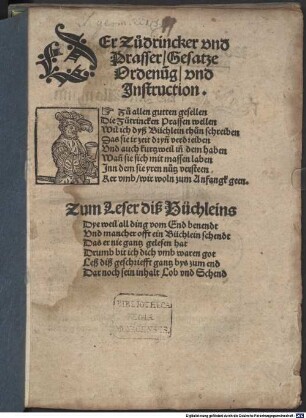 DEr Zůdrincker vnd
Prasser/Gesatze
Ordenůg/vnd
Instruction.
Fů allen gutten gesellen
Die Fürtrincken Prassen wellen
Wil ich dyß Büchlein thůn schreiben
Das sie ir zeit dayn̄ verdreiben
Vnd auch kurtzweil in dem haben
Wan̄ sie sich mit massen laben
Inn dem sie yren nutz versteen.
Ker vmb/wir wöln zum Anfangk geen.
Zum Leser diß Büchleins
Dye weil all ding vom End benendt
Vnd mancher offt ein Büchlein schendt
Das er nie gantz gelesen hat
Drumb bit ich dich vmb waren got
Leß diß geschriefft gantz bys zum end
Dar noch sein inhalt Lob vnd Schend
BIBLIOTHECA
REGIA
MONACENSIS.